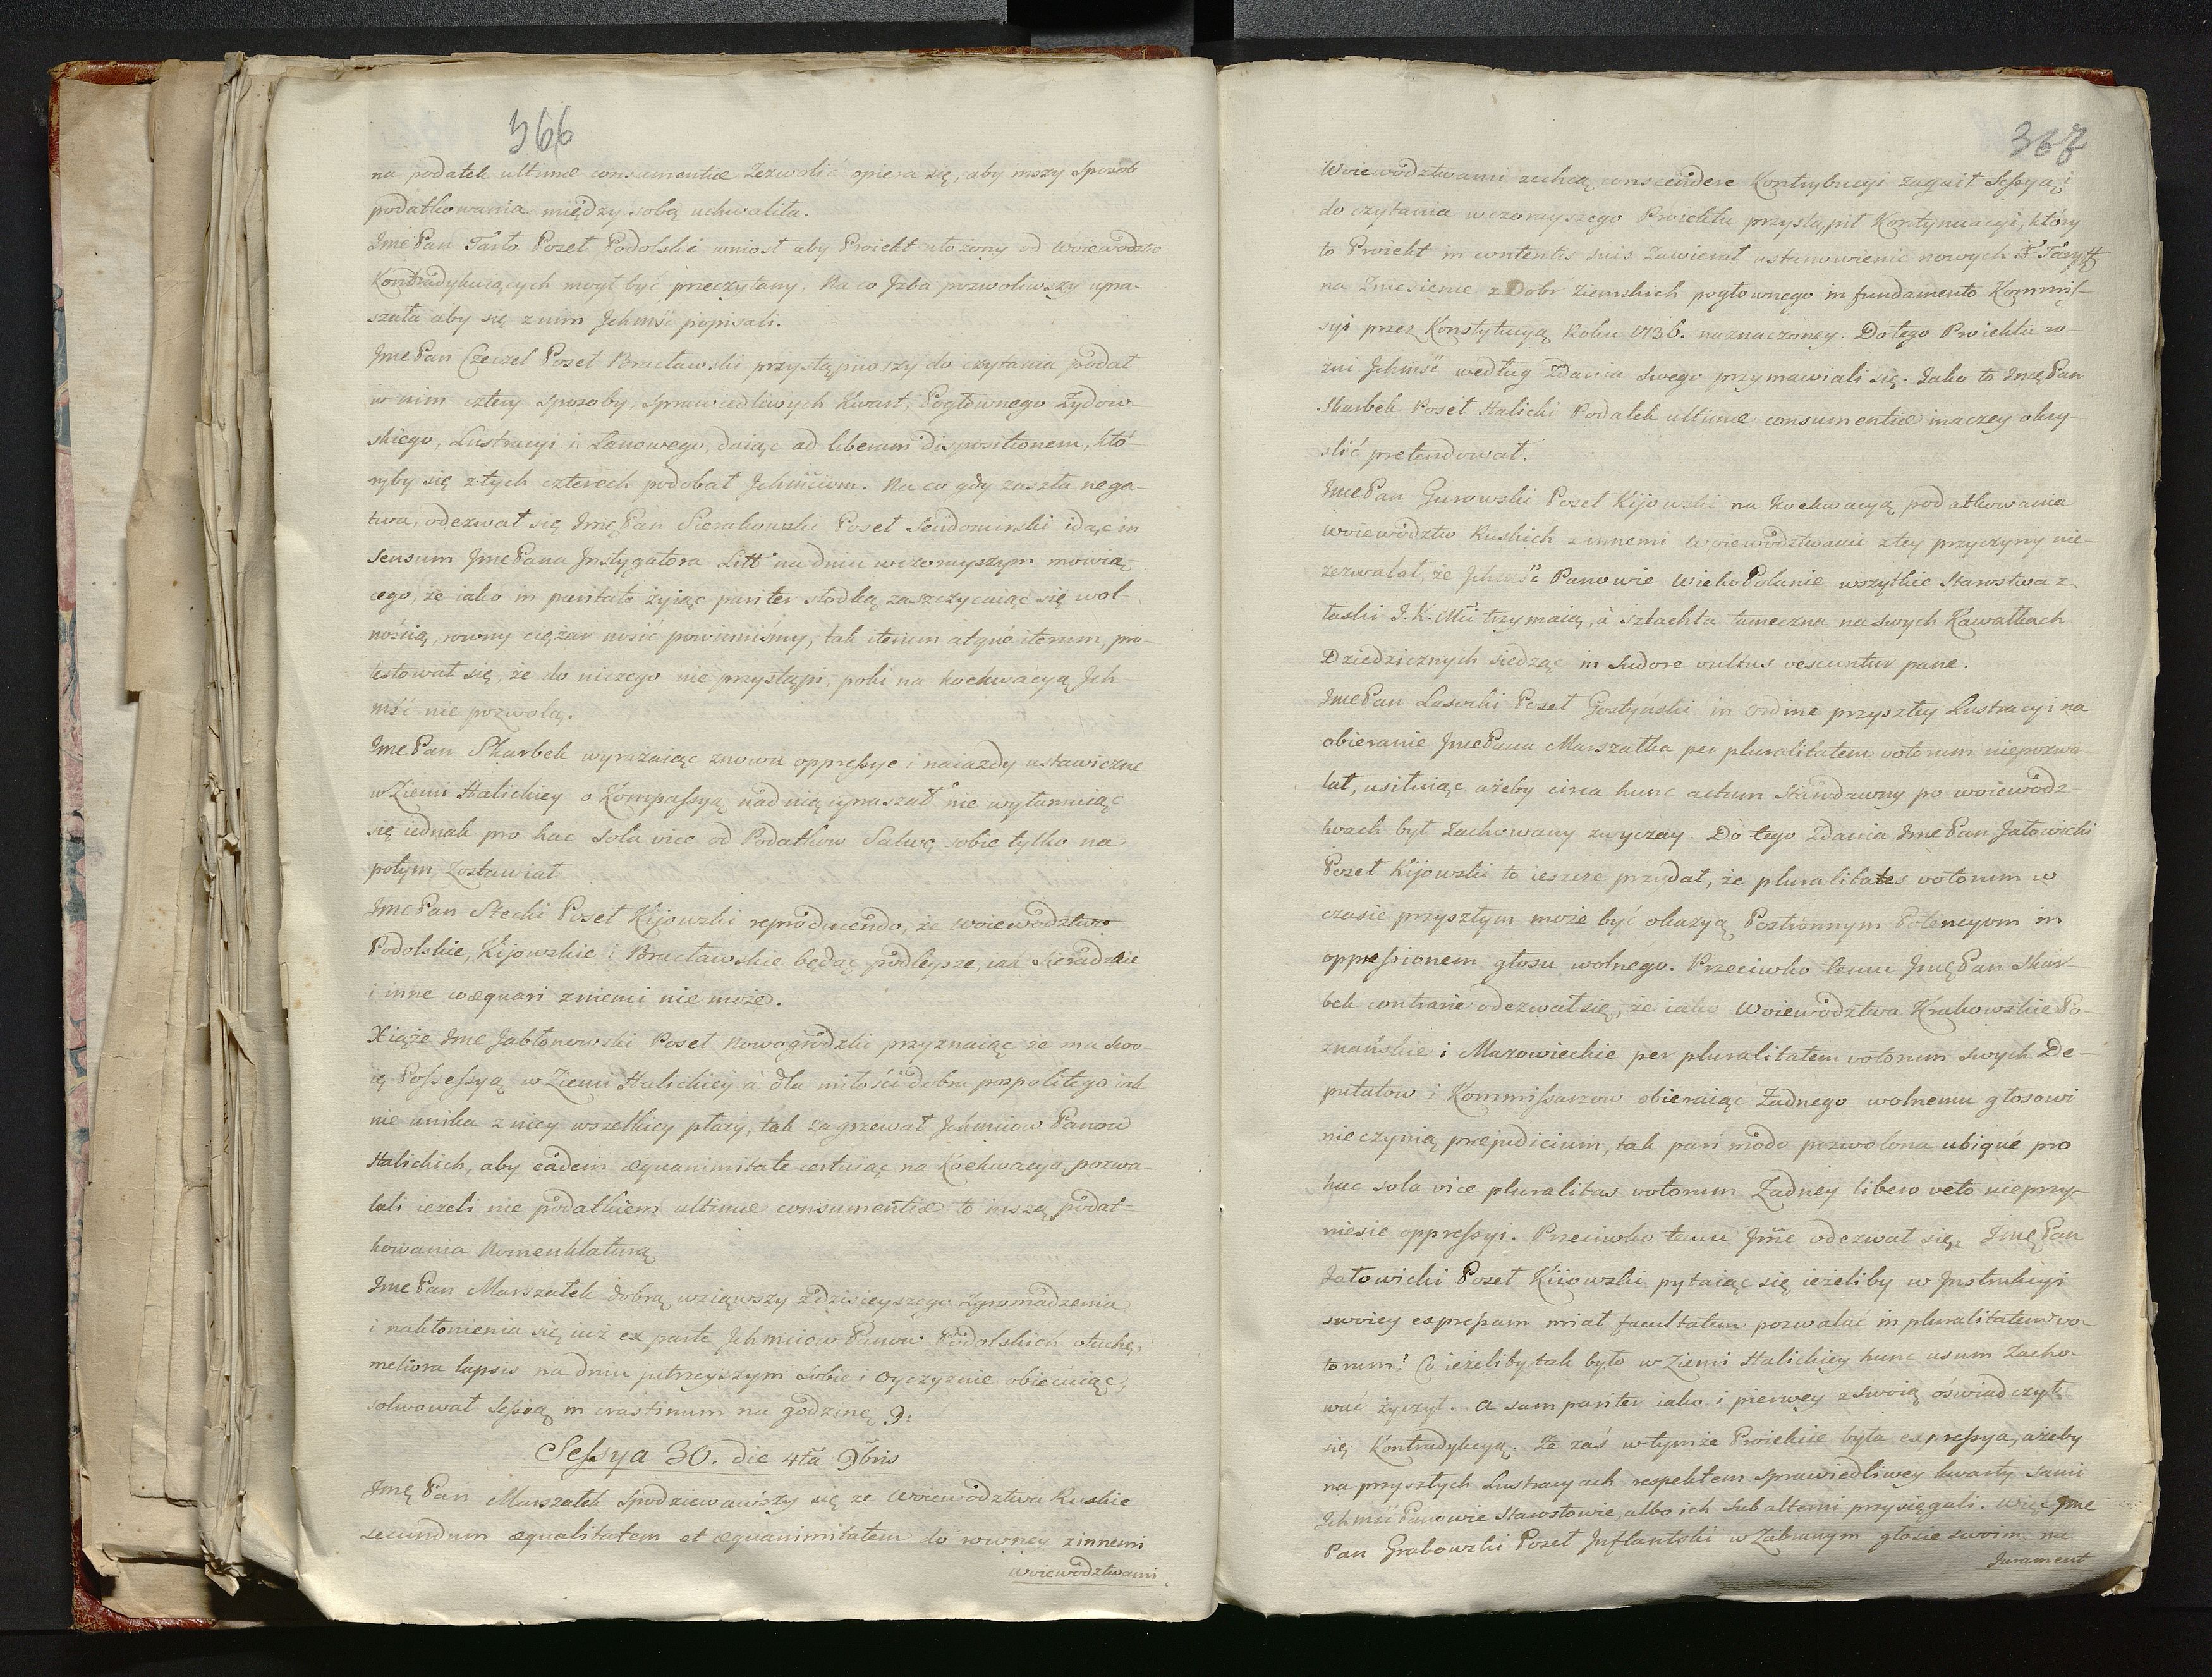 366
na podatek ultimæ consumentiæ zezwolić opiera się, aby inszy sposob
podatkowania między sobą uchwaliła.
Jme Pan Tarło Poseł Podolski wniosł aby Proiekt ułożony od Woiewodztw
Kontradykuiących mogł być przeczytany, Na co Jzba pozwoliwszy upra-
szała aby się z nim Jchmść popisali.
Jme Pan Czeczel Poseł Bracławski przystąpiwszy do czytania podał
w nim cztery sposoby, sprawiedliwych Kwart, Pogłownego Żydow-
skiego, Lustracyi i Łanowego, daiąc ad liberam dispositionem, któ-
ryby się z tych czterech podobał Jchmściom. Na co gdy zaszła nega-
tiva, odezwał się Jmę Pan Sierakowski Poseł Sendomirski idąc in
sensum Jme Pana Jnstygatora Litt na dniu wczorayszym mowią-
cego, że iako in paritate żyiąc pariter słodką zaszczycaiąc się wol-
nością, rowny ciężar nosić powinniśmy, tak iterum atque iterum pro-
testował się, że do niczego nie przystąpi, poki na koekwacyą Jch-
mść nie pozwolą.
Jme Pan Skarbek wyrażaiąc znowu oppressye i naiazdy ustawiczne
w Ziemi Halickiey o Kompassyą nad nią upraszał nie wyłamuiąc
się iednak pro hac sola vice od Podatkow Salwę sobie tylko na
potym zostawiał
Jme Pan Stecki Poseł Kijowski reproducendo, że Woiewodztwo
Podolskie, Kijowskie i Bracławskie będąc podleysze, iak Sieradzkie
i inne coæquari z niemi nie może.
Xiąże Jme Jabłonowski Poseł Nowogrodzki przyznaiąc że ma swo-
ię Possessyą w Ziemi Halickiey à dla miłości dobra pospolitego iak
nie unika z niey wszelkiey płacy, tak zagrzewał Jchmciow Panow
Halickich, aby eâdem æquanimitate certuiąc na Koekwacyą pozwa-
lali ieżeli nie podatkiem ultimæ consumentiæ to inszą podat-
kowania Nomenklaturą
Jme Pan Marszałek dobrą wziąwszy z dzisieyszego zgromadzenia
i nakłonienia się iuż ex parte Jchmciow Panow Podolskich otuchę,
meliora lapsis na dniu jutrzeyszym sobie i Oyczyznie obiecuiąc,
solwował Sessią in crastinum na godzinę 9.
Sessya 30. die 4ta 9bris
Jmę Pan Marszałek spodziewawszy się ze Woiewodztwa Ruskie
secundum æqualitatem et æquanimitatem do rowney z innemi
Woiewodztwami
367
Woiewodztwami zechcą conscendere Kontrybucyi zagaił Sessyą i
do czytania wczorayszego Proiektu przystąpił Kontynuacyi, który
to Proiekt in contentis suis zawierał ustanowienie nowych Taryff
na zniesienie z Dobr ziemskich pogłownego in fundamento Kommis-
syi przez Konstytucyą Roku 1736. naznaczoney. Do tego Proiektu ro-
zni Jchmść według zdania swego przymawiali się. Jako to Jmę Pan
Skarbek Poseł Halicki Podatek ultimæ consumentiæ inaczey okry-
slić pretendował.
Jme Pan Gurowski Poseł Kijowski na Koekwacyą podatkowania
Woiewodztw Ruskich z innemi Woiewodztwami z tey przyczyny nie-
zezwalał, że Jchmść Panowie WielkoPolanie wszytkie Starostwa z
łaski J. K. Mci trzymaią, à szlachta tameczna na swych Kawałkach
Dziedzicznych siedząc in sudore vultus vescuntur pane.
Jme Pan Lasocki Poseł Gostyński in ordine przyszłey Lustracyi na
obieranie Jme Pana Marszałka per pluralitatem votorum niepozwa-
lał, usiłuiąc ażeby circa hunc actum Starodawny po woiewodz-
twach był zachowany zwyczay. Do tego zdania Jme Pan Jałowicki
Poseł Kijowski to ieszcze przydał, że pluralitates votorum w
czasie przyszłym może być okazyą Postronnym Potencyom in
oppressionem głosu wolnego. Przeciwko temu Jmę Pan Skar-
bek contrarie odezwał się, że iako Woiewodztwa Krakowskie Po-
znańskie i Mazowieckie per pluralitatem votorum swych De-
putatow i Kommissarzow obieraiąc Żadnego wolnemu głosowi
nieczynią præjudicium, tak pari modo pozwolona ubique pro
hac sola vice pluralitas votorum Żadney libero veto nieprzy-
niesie oppressyi. Przeciwko temu Jme odezwał się Jmę Pan
Jałowicki Poseł Kiiowski pytaiąc się ieżeliby w Jnstrukcyi
swoiey expressam miał facultatem pozwalać in pluralitatem vo-
torum? Co ieżeliby tak było w Ziemi Halickiey hunc usum zacho-
wać życzył. A sam pariter iako i pierwey z swoią oświadczył
się Kontradykcyą. Że zaś w tymże Proiekcie była expressya, ażeby
na przyszłych Lustracyach respektem sprawiedliwey kwarty sami
Jchmść Panowie Starostowie, albo ich subalterni przysięgali. Więc Jme
Pan Grabowski Poseł Jnflantski w zabranym głosie swoim na
Jurament